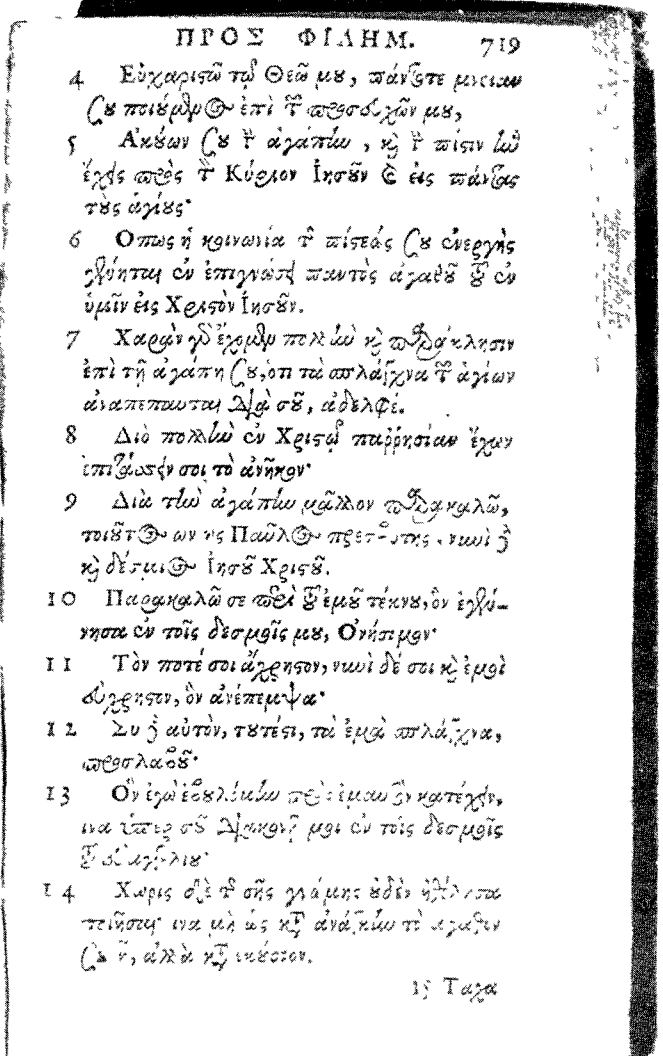 ΠΡΟΣ ΦΙΛΗΜ. 719
4 Εὐχαριστῶ τῷ Θεῷ μου, πάντοτε μνείαν
σου ποιούμενος ἐπὶ τῶν προσευχῶν μου,
5 Ακούων σου τὴν ἀγάπην, καὶ τὴν πίστιν ἣν
ἔχεις πρὸς τὸν Κύριον Ἰησοῦν καὶ εἰς πάντας
τοὺς ἁγίους·
6 Οπως ἡ κοινωνία τῆς πίστεώς σου ἐνεργὴς
γένηται ἐν ἐπιγνώσει παντὸς ἀγαθοῦ τοῦ ἐν
ὑμῖν εἰς Χριστὸν Ἰησοῦν.
7 Χαρὰν γὰρ ἔχομεν πολλὴν καὶ παράκλησιν
ἐπὶ τῇ ἀγάπῃ σου, ὅτι τὰ σπλάγχνα τῶν ἁγίων
ἀναπέπαυται διὰ σοῦ, ἀδελφέ.
8 Διὸ πολλὴν ἐν Χριστῷ παῤῥησίαν ἔχων
ἐπιτάσσειν σοι τὸ ἀνῆκον·
9 Διὰ τὴν ἀγάπην μᾶλλον παρακαλῶ,
τοιοῦτος ων ὡς Παῦλος πρεσβύτης, νυνὶ δὲ
καὶ δέσμιος Ἰησοῦ Χριστοῦ.
10 Παρακαλῶ σε περὶ τοῦ ἐμοῦ τέκνου, ὃν ἐγέν-
νησα ἐν τοῖς δεσμοῖς μου, Ὀνήσιμον·
11 Τὸν ποτέ σοι ἄχρηστον, νυνὶ δέ σοι καὶ ἐμοὶ
εὔχρηστον, ὃν ἀνέπεμψα·
12 Συ δὲ αὐτὸν, τουτέστι, τὰ ἐμὰ σπλάγχνα,
προσλαβοῦ·
13 Ὃν ἐγὼ ἐβουλόμην πρὸς ἐμαυτὸν κατέχειν,
ινα ὑπὲρ σοῦ διακονῇ μοι ἐν τοῖς δεσμοῖς
τοῦ εὐαγγελίου·
14 Χωρις δὲ τῆς σῆς γνώμης οὐδὲν ἠθέλησα
ποιῆσαι· ινα μὴ ὡς κατὰ ἀνάγκην τὸ ἀγαθόν
σου ᾖ, ἀλλὰ κατὰ ἑκούσιον.
15 Ταχα